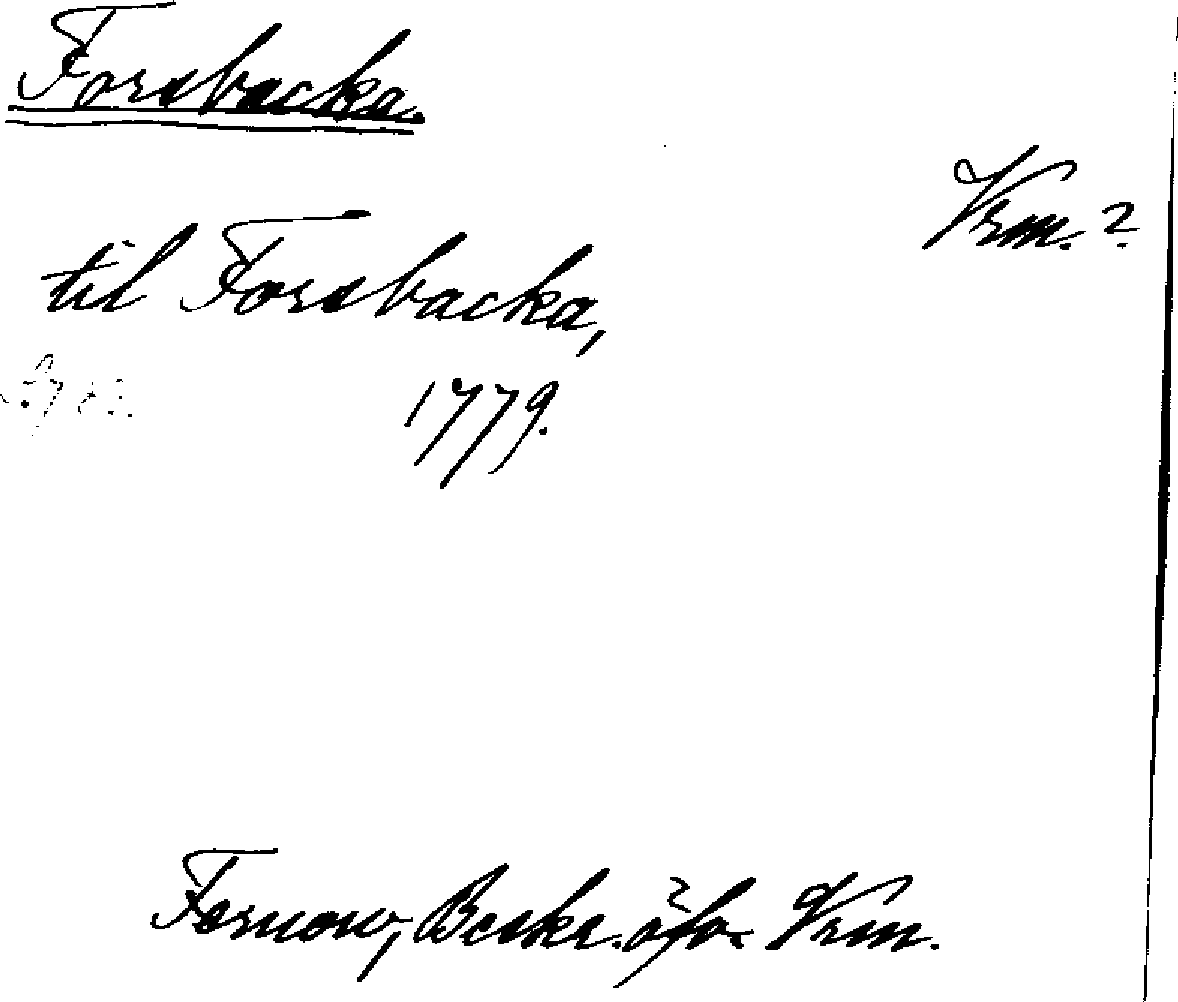 Forsbacka.
Vrm. ?
til Forsbacka,
1779.
Fernow, Beskr. öfv. Vrm.